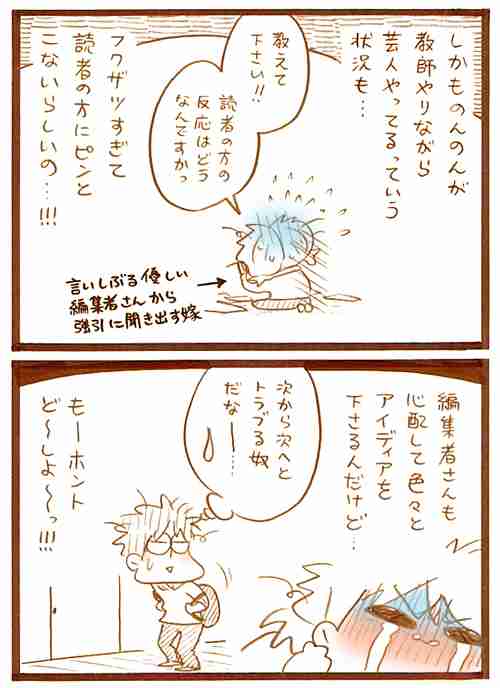 しかものんのんが
教師やりながら
芸人やってるっていう
状況も…
教えて
下さい!!
読者の方の
反応はどう
なんですかっ
フクザツすぎて
読者の方にピンと
こないらしいの…!!!
言いしぶる優しい
編集者さんから
強引に聞き出す嫁
編集者さんも
心配して色々と
アイディアを
下さるんだけど…
次から次へと
トラブる奴
だなーー……
もーホント
ど〜しよ〜〜っ!!!